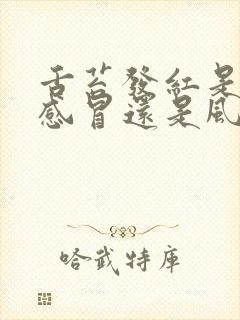 舌苔發紅是
感冒還是風
哈武特庫